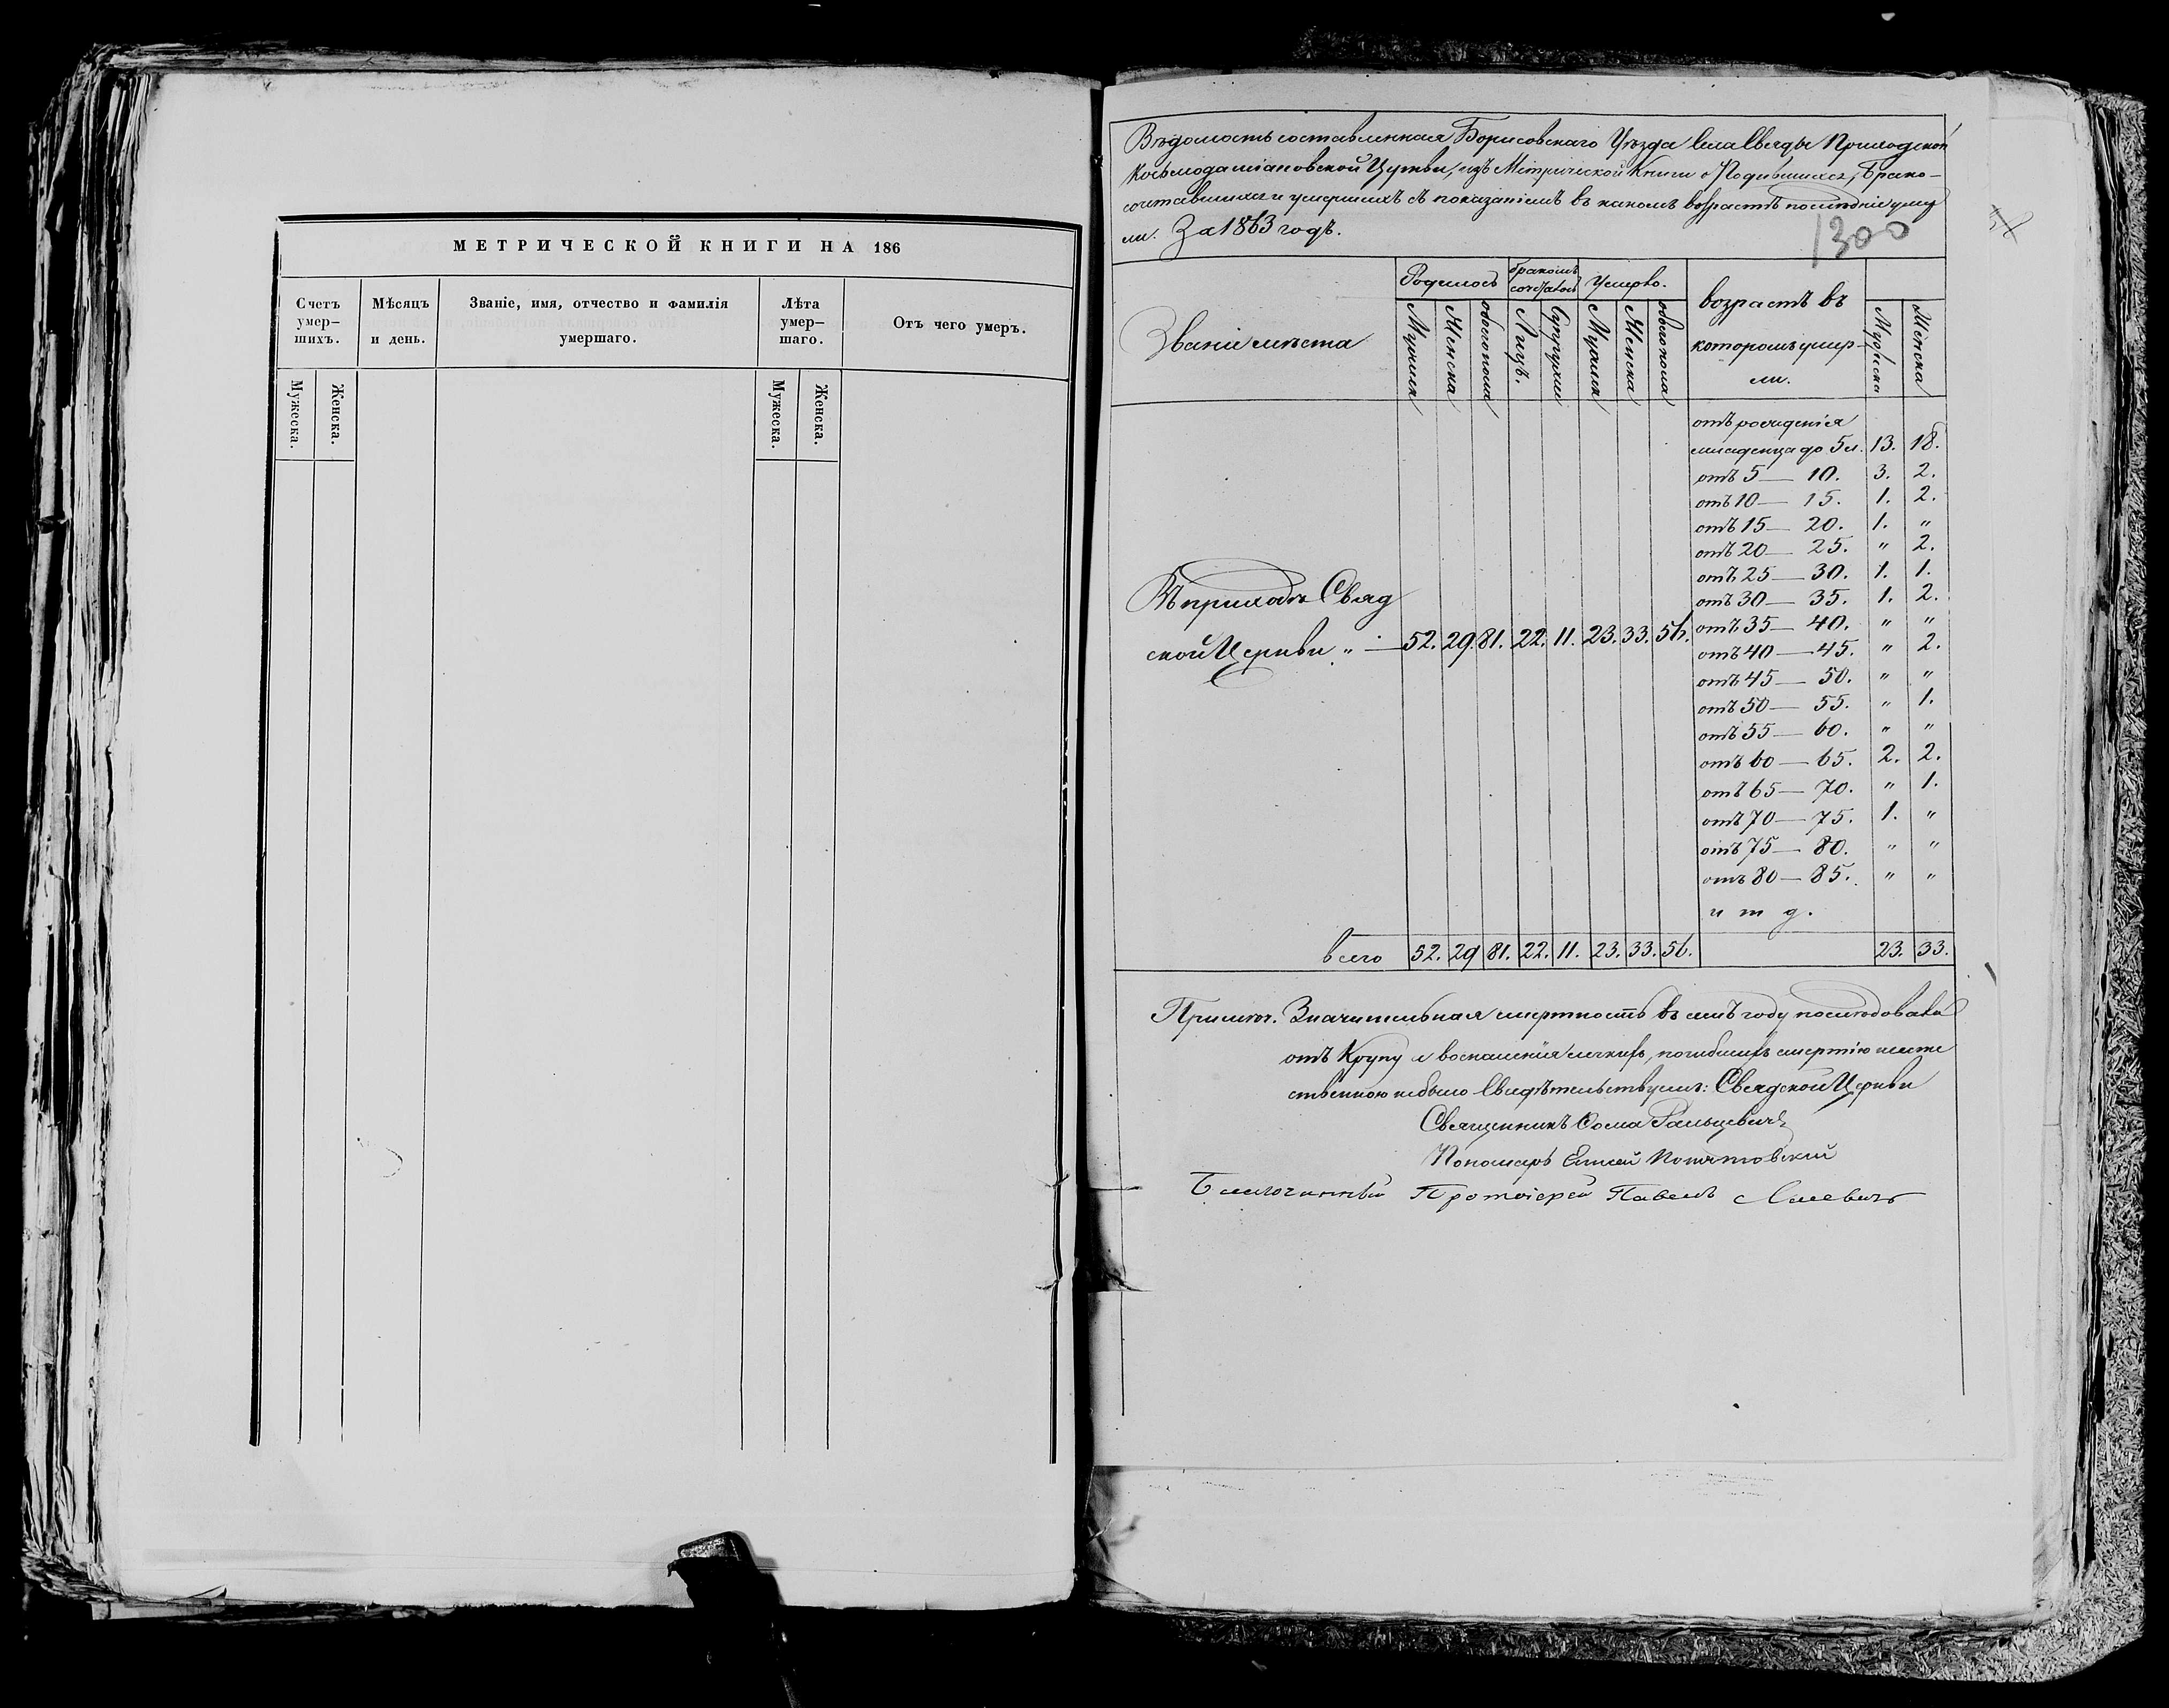 МЕТРИЧЕСКОЙ КНИГИ НА 186
Счетъ умер– шихъ.
Мѣсяцъ и день.
Званіе, имя, отчество и фамилія умершаго.
Лѣта умер– шаго.
Отъ чего умеръ.
Мужеска.
Женска.
Мужеска.
Женска.
Вѣдомость составленная Борисовскаго Уѣзда села Свяды Приходской
Косьмодаміановской Церкви, изъ Метрической Книги о Родившихся, Брако–
сочетавшихся и умершихъ съ показаніемъ въ какомъ возрастѣ послѣдніе умер
ли. За 1863 годъ.
1300
Званіе мѣста
Родилось
бракомъ сочеталось
Умерло.
возрастъ въ
которомъ умер–
ли.
Мужеска
Женска
обоего пола
Лицъ.
Супружествъ
Мужеска
Женска
обоего пола
Мужеска
Женска
отъ рожденія
младенца до 5 л. 13. 18.
отъ 5 — 10. 3. 2.
отъ 10 — 15. 1. 2.
отъ 15 — 20. 1. "
отъ 20 — 25. " 2.
отъ 25 — 30. 1. 1.
отъ 30 — 35. 1. 2.
Въ приходѣ Свяд
ской Церкви " — 52. 29. 81. 22. 11. 23. 33. 56.
отъ 35 — 40. " "
отъ 40 — 45. " 2.
отъ 45 — 50. " "
отъ 50 — 55. " 1.
отъ 55 — 60. " "
отъ 60 — 65. 2. 2.
отъ 65 — 70. " 1.
отъ 70 — 75. 1. "
отъ 75 — 80. " "
отъ 80 — 85. " "
и т д.
всего 52. 29 81. 22. 11. 23. 33. 56. 23. 33.
Примѣч. Значительная смертность въ семъ году послѣдовала
отъ Крупу и воспаленія легкихъ, погибшихъ смертію неесте
ственною небыло Свидѣтельствуемъ: Свядской Церкви
Священникъ Фома Ральцевичъ
Пономарь Елисей
Благочинный Протоіерей Павелъ